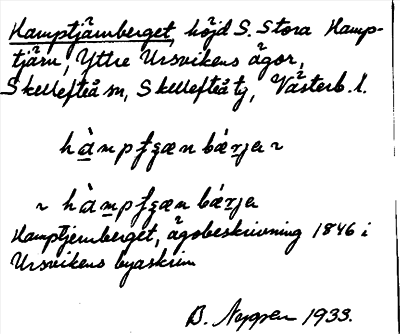 Hamptjärnberget, höjd S. Stora Hamp-
tjärn, Yttre Ursvikens ägor,
Skellefteå sn, Skellefteå tg, Västerb. l.
hàmpfʒæn bǽrja ~
~ hàmpfʒæn bǽrja
Hamptjernberget, ägobeskrivning 1846 i
Ursvikens byaskrin
B. Nygren 1933.